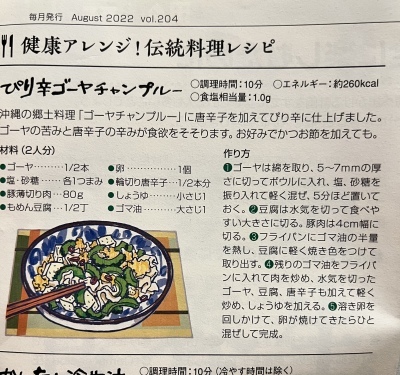 毎月発行 August 2022 vol.204
健康アレンジ！伝統料理レシピ
ぴり辛ゴーヤチャンプルー
○調理時間：10分 ○エネルギー：約260kcal
○食塩相当量：1.0g
沖縄の郷土料理「ゴーヤチャンプルー」に唐辛子を加えてぴり辛に仕上げました。
ゴーヤの苦みと唐辛子の辛みが食欲をそそります。お好みでかつお節を加えても。
材料（2人分）
●ゴーヤ………1/2本
●塩・砂糖……各1つまみ
●豚薄切り肉…80g
●もめん豆腐…1/2丁
●卵……………1個
●輪切り唐辛子…1/2本分
●しょうゆ……小さじ1
●ゴマ油………大さじ1
作り方
❶ゴーヤは綿を取り、5〜7mmの厚
さに切ってボウルに入れ、塩、砂糖を
振り入れて軽く混ぜ、5分ほど置いて
おく。❷豆腐は水気を切って食べや
すい大きさに切る。豚肉は4cm幅に
切る。❸フライパンにゴマ油の半量
を熱し、豆腐に軽く焼き色をつけて
取り出す。❹残りのゴマ油をフライパ
ンに入れて肉を炒め、水気を切った
ゴーヤ、豆腐、唐辛子も加えて軽く
炒め、しょうゆを加える。❺溶き卵を
回しかけて、卵が焼けてきたらひと
混ぜして完成。
○調理時間：10分（冷やす時間は除く）